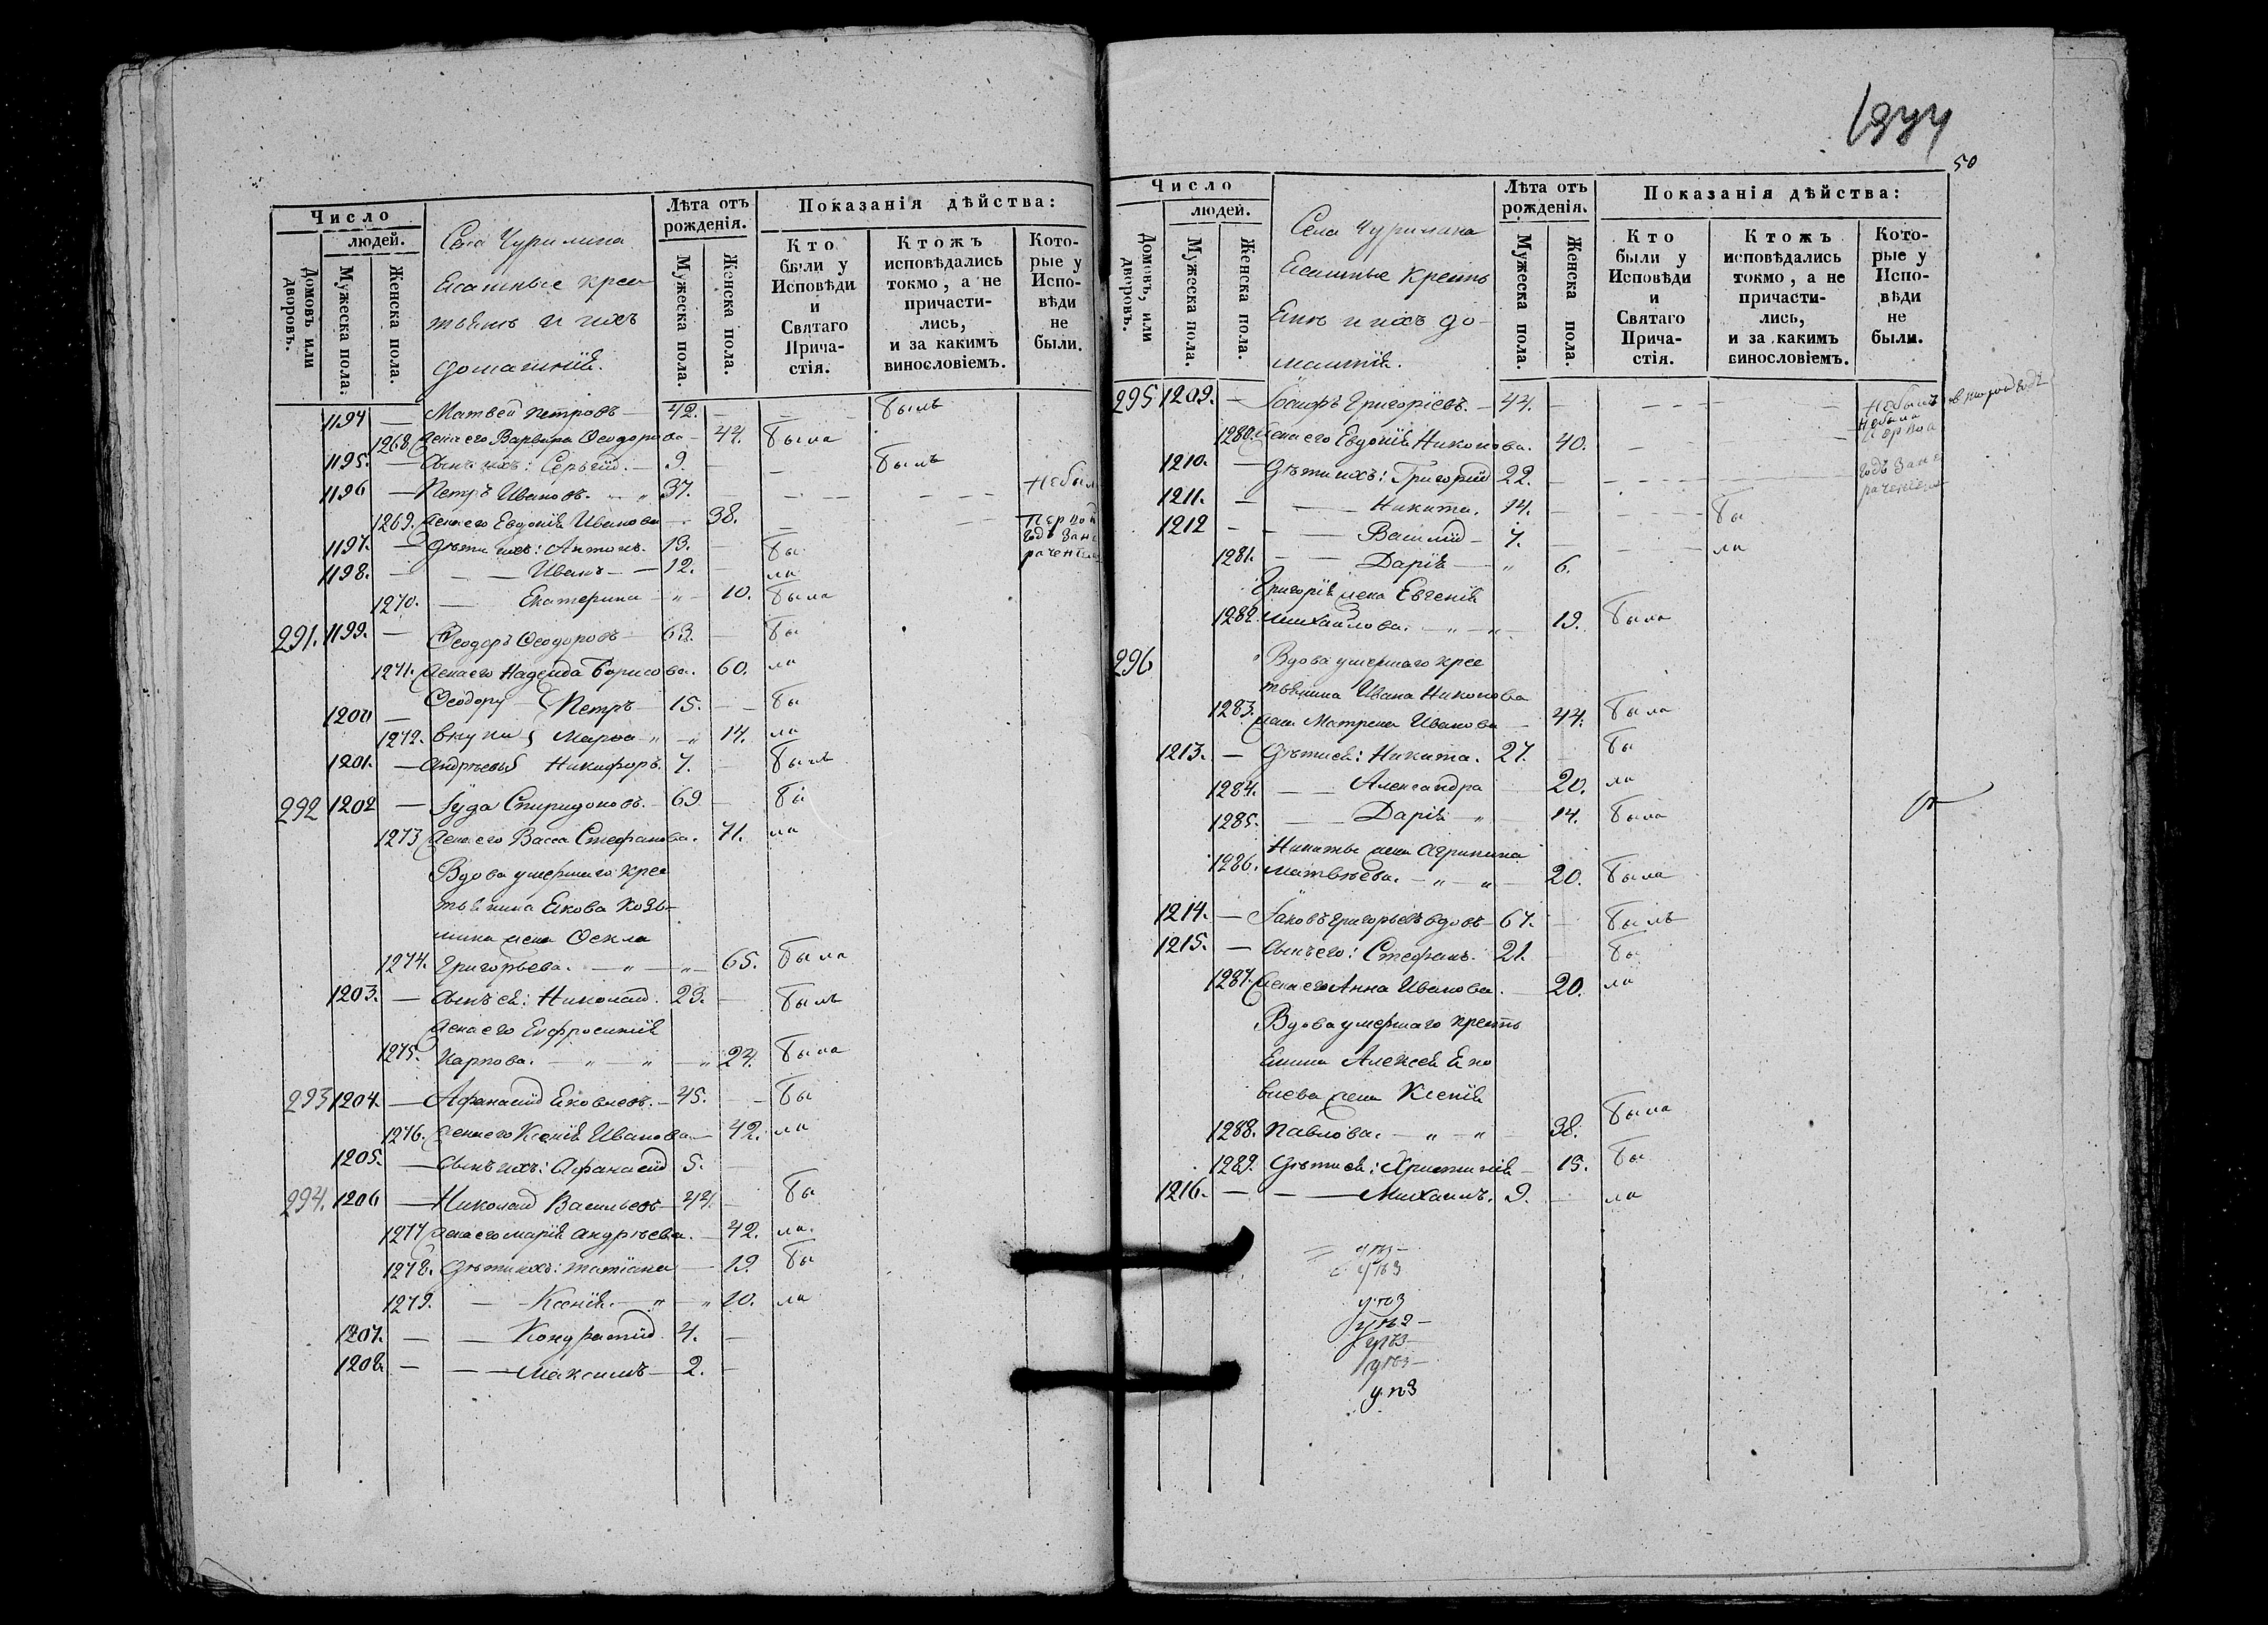 Число
людей.
Домовъ или дворовъ.
Мужеска пола.
Женска пола.
Села Чурилина
Ясашные крес
тьянъ и ихъ
домашнія.
Лѣта отъ рожденія.
Мужеска пола.
Женска пола.
Показанія дѣйства:
Кто были у Исповѣди и Святаго Прича- стія.
Ктожъ исповѣдались токмо, а не причасти- лись, и за какимъ винословіемъ.
Кото- рые у Испо- вѣди не были.
1194 — Матвей Петровъ — 42. — былъ
1268 жена его Варвара Ѳеодорова — 44. была
1195. — Сынъ ихъ: Сергій. — 9. — былъ
1196 — Петръ Ивановъ. — „ 37. — Небыл
1269. жена его Евдокія Иванова — 38. Первой
1197. — Дѣти ихъ: Антонъ. 13. — бы годъ зане
1198. — — Иванъ — 12. — ла рачениемъ
1270. — Екатерина — „ — 10. была
291. 1199. — Ѳеодоръ Ѳеодоровъ — 63. — бы
1271. жена его Надежда Борисова. 60. ла
1200 — Ѳеодору Петръ — 15. — бы
1272. внуки Марѳа „ — „ 14. ла
1201. — Андреевы Никифоръ. 7. — былъ
292 1202 — Іуда Спиридоновъ. — 69 — бы
1273 жена его Васса Стефанова. 71. ла
Вдова умершаго крес
тьянина Якова Козь-
мина жена Ѳекла
1274. Григорьева. — „ — „ — 65. была
1203. — Сынъ ея: Николай. 23. — былъ
жена его Ефросинія
1275. Карпова. — „ — „ — „ 24. была
293 1204. — Афанасій Яковлевъ. — 45. — бы
1276. жена его Ксенія Иванова — 42. ла
1205. — Сынъ ихъ: Афанасій 5. —
294. 1206 — Николай Васильевъ — 44. — бы
1277 жена его Марія Андреева. — 42. ла.
1278. Дѣти ихъ: Татіана — 19. бы
1279. — Ксенія. — „ — „ 10. ла
1207. — — Кондратій. 4. —
1208. — — Максимъ — 2. —
1944
50
Число
людей.
Домовъ, или дворовъ.
Мужеска пола.
Женска пола.
Села Чурилина
Ясашные Кресть
Янъ и ихъ до-
машнія.
Лѣта отъ рожденія.
Мужеска пола.
Женска пола.
Показанія дѣйства:
Кто были у Исповѣди и Святаго Прича- стія.
Ктожъ исповѣдались токмо, а не причасти- лись, и за какимъ винословіемъ.
Кото- рые у Испо- вѣди не были.
295 1209. — Іосифъ Григоріевъ. — 44. — Небылъ
1280. жена его Евдокія Никонова. 40. — Небыла Первой
1210. — Дѣти ихъ: Григорій 22. — годъ зане
1211. — — Никита. 14. — бы рачениемъ
1212 — — Василій — 7. — ла
1281. — — Дарія — „ 6.
Григорія жена Евгенія
1282. Михайлова. — „ — „ — 19. была
296 Вдова умершаго крес
тьянина Ивана Никонова
1283. жена Матрена Иванова — 44. была
1213. — Дѣти ея: Никита. 27. бы
1284. — — Александра 20. ла
1285. — — Дарія „ — 14. была
Никиты жена Агрипина
1286. Матвѣева. — „ — „ — 20. была
1214. — Іаковъ Григорьевъ вдовъ — 67. — былъ
1215. — Сынъ его: Стефанъ. 21. — бы
1287. жена его Анна Иванова. — 20. ла
Вдова умершаго кресть
Янина Алексея Яко
влева жена Ксенія
1288. Павлова. — „ — „ — 38. была
1289. Дѣти ея: Христинія — 13. бы
1216. — — Михаилъ. 9. — ла